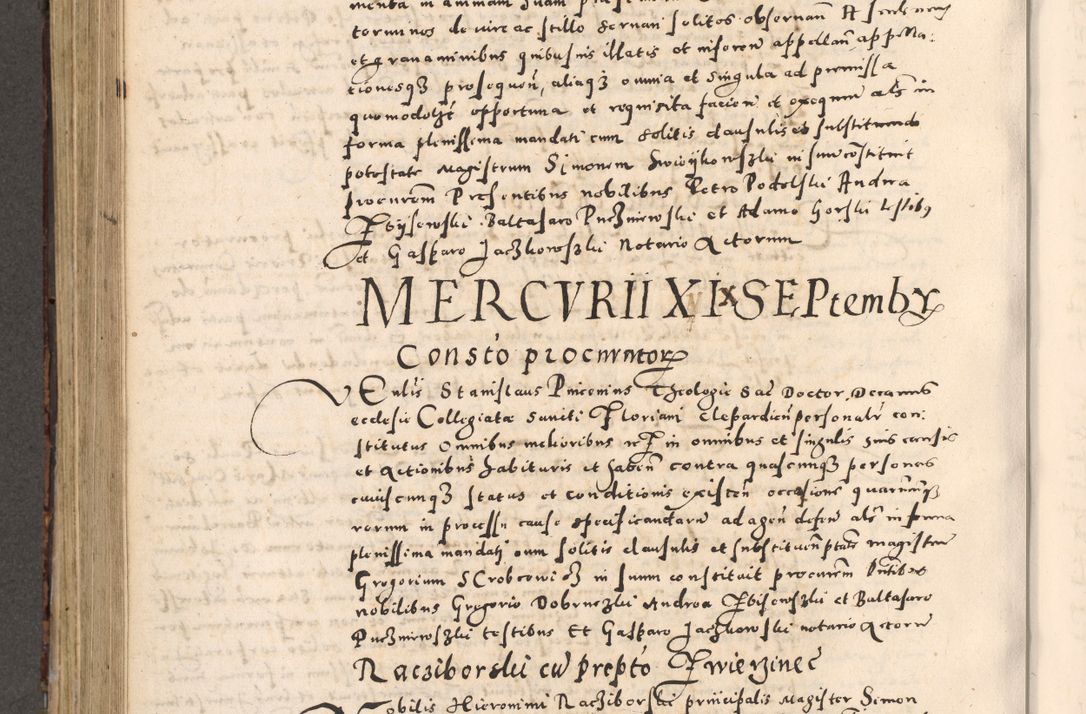 menta in animam suam
torumnos de jure ac stillo servari solitos observan
et gravaminibus quibusvis illatis et inferen appellan appella:
tionesqz prosequen, aliaqz omnia et singula ad premissa
quomodolzt opportuna et requisita facien et exequen als in
forma plenissima mandati cum solitis clausulis et substituendi
potestate Magistrum Simonem in suum constituit
procurem Presentibus nobilibus Petro Podolski Andrea
Baltasaro Puczniewski et Adamo Gorski testibus
et Gasparo Jaczkowski Notario Actorum
MERCVRII XIX SEPtembr
Consto procuratoris
VEnlis Stanislaus Theologie Sac Doctor Decanus
ecclesie Collegiatae Sancti Floriani Clepardien personalr con:
stitutus Omnibus melioribus in omnibus et singulis suis causis
et Actionibus habituris et haben contra quascunqz personas
cuiuscunqz status et conditionis existen occasione quarumcunqz
rerum in processu cause specificandarum ad agen defen als in forma
plenissima mandati cum solitis clausulis et substituen ptate magistrum
Gregorium SCrobcowicz in suum constituit procurem Pntibus
nobilibus Gregorio Andrea et Baltasaro
Puczniewski testibus Et Gasparo Jaczkowski notario Actorum
Racziborski cum prepto Zwierzinec
Nobilis Hieronimi Racziborski principalis Magister Simon